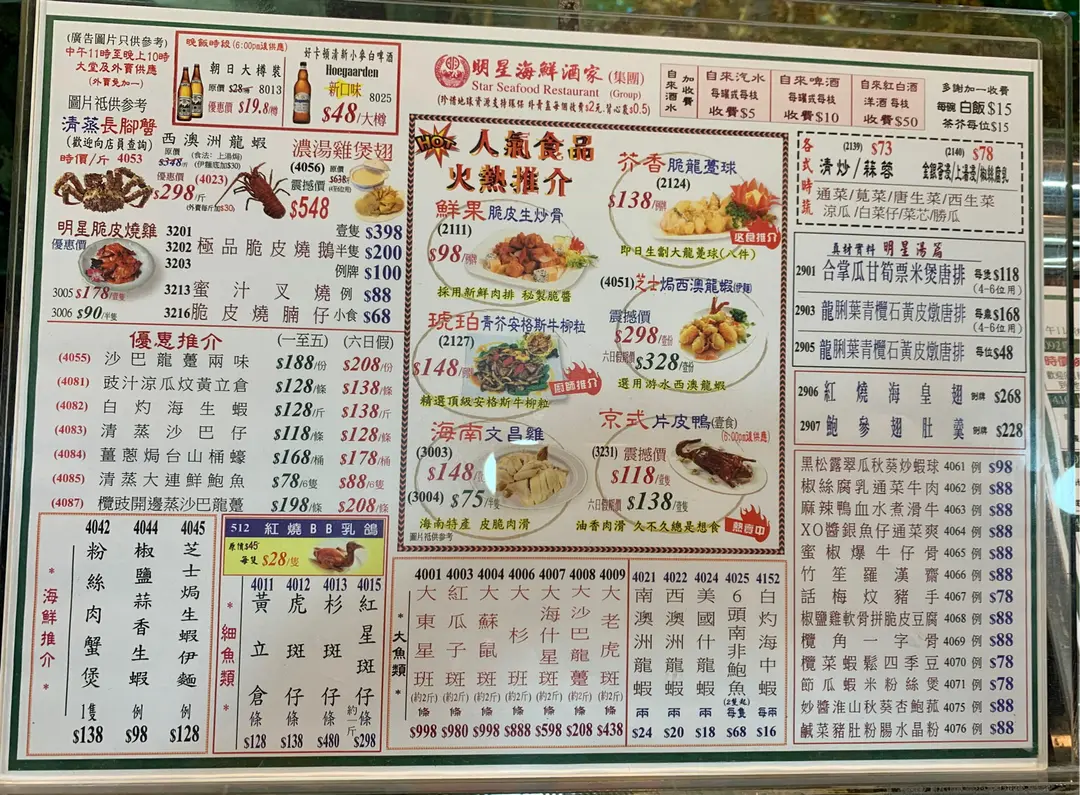 (廣告圖片只供參考)
中午11時至晚上10時
大堂及外賣供應
(外賣免加一)
圖片祇供參考
清蒸長腳蟹
(歡迎向店員查詢)
時價/斤 4053
晚飯時段(6:00pm後供應)
朝日大樽裝
原價 $28/樽 8013
優惠價 $19.8/樽
好卡頓清新小麥白啤酒
Hoegaarden
新口味
8025
$48/大樽
明星海鮮酒家(集團)
Star Seafood Restaurant (Group)
自來酒水
加收費
自來汽水
每罐或每枝
收費$5
自來啤酒
每罐或每枝
收費$10
自來紅白酒
洋酒 每枝
收費$50
多謝加一收費
每碗 白飯 $15
茶芥每位$15
西澳洲龍蝦
原價 $348/斤
(食法:上湯焗)
(伊麵底加$30)
優惠價 (4023)
$298/斤
(外賣每斤加$30)
濃湯雞煲翅
(4056) 原價
$638
震撼價
$548
明星脆皮燒雞
優惠價
3005 $178/壹隻
3006 $90/半隻
3201 壹隻 $398
3202 極品脆皮燒鵝 半隻 $200
3203 例牌 $100
3213 蜜汁叉燒 例 $88
3216 脆皮燒腩仔 小食 $68
優惠推介 (一至五) (六日假)
(4055) 沙巴龍躉兩味 $188/份 $208/份
(4081) 豉汁涼瓜炆黃立倉 $128/條 $138/條
(4082) 白灼海生蝦 $128/斤 $138/斤
(4083) 清蒸沙巴仔 $118/條 $128/條
(4084) 薑蔥焗台山桶蠔 $168/桶 $178/桶
(4085) 清蒸大連鮮鮑魚 $78/6隻 $88/6隻
(4087) 欖豉開邊蒸沙巴龍躉 $198/條 $208/條
HOT 人氣食品
火熱推介
鮮果脆皮生炒骨
(2111)
$98/例牌
採用新鮮肉排 秘製脆醬
芥香脆龍躉球
(2124)
$138/例牌
必食推介
即日生劏大龍躉球(八件)
琥珀青芥安格斯牛柳粒
(2127)
$148/例牌
廚師推介
精選頂級安格斯牛柳粒
(4051)芝士焗西澳龍蝦(伊麵)
震撼價
$298/壹份
六日假期價 $328/壹份
選用游水西澳龍蝦
海南文昌雞
(3003)
$148/壹隻
(3004) $75/半隻
海南特產 皮脆肉滑
圖片祇供參考
京式片皮鴨(壹食)
(6:00pm後供應)
(3231) 震撼價
$118/壹隻
六日假期價 $138/壹隻
油香肉滑 久不久總是想食
熱賣中
各式時蔬
(2139) $73
清炒/蒜蓉
(2140) $78
通菜/莧菜/唐生菜/西生菜
涼瓜/白菜仔/菜芯/勝瓜
真材實料 明星湯篇
2901 合掌瓜甘筍栗米煲唐排 每煲$118
(4-6位用)
2903 龍脷葉青欖石黃皮燉唐排 每鼎$168
(4-6位用)
2905 龍脷葉青欖石黃皮燉唐排 每位$48
2906 紅燒海皇翅 例牌 $268
2907 鮑參翅肚羹 例牌 $228
黑松露翠瓜秋葵炒蝦球 4061 例 $98
椒絲腐乳通菜牛肉 4062 例 $88
麻辣鴨血水煮滑牛 4063 例 $88
XO醬銀魚仔通菜爽 4064 例 $88
蜜椒爆牛仔骨 4065 例 $88
竹笙羅漢齋 4066 例 $88
話梅炆豬手 4067 例 $78
椒鹽雞軟骨拼脆皮豆腐 4068 例 $88
欖角一字骨 4069 例 $88
欖菜蝦鬆四季豆 4070 例 $78
節瓜蝦米粉絲煲 4071 例 $78
妙醬淮山秋葵杏鮑菰 4075 例 $88
鹹菜豬肚粉腸水晶粉 4076 例 $88
*海鮮推介*
4042 粉絲肉蟹煲 1隻 $138
4044 椒鹽蒜香生蝦 例 $98
4045 芝士焗生蝦伊麵 例 $128
512 紅燒BB乳鴿
原價$45
每隻 $28/隻
*細魚類*
4011 黃立倉 條 $128
4012 虎斑仔 條 $138
4013 杉斑仔 條 $480
4015 紅星斑仔 約一斤 條 $298
*大魚類*
4001 大東星班 (約2斤) 條 $998
4003 紅瓜子斑 (約2斤) 條 $980
4004 大蘇鼠斑 (約2斤) 條 $998
4006 大杉班 (約2斤) 條 $888
4007 大海什星班 (約2斤) 條 $598
4008 大沙巴龍躉 (約2斤) 條 $208
4009 大老虎斑 (約2斤) 條 $438
4021 南澳洲龍蝦 兩 $24
4022 西澳洲龍蝦 兩 $20
4024 美國什龍蝦 兩 $18
4025 6頭南非鮑魚 (2隻起) 每隻 $68
4152 白灼海中蝦 每兩 $16